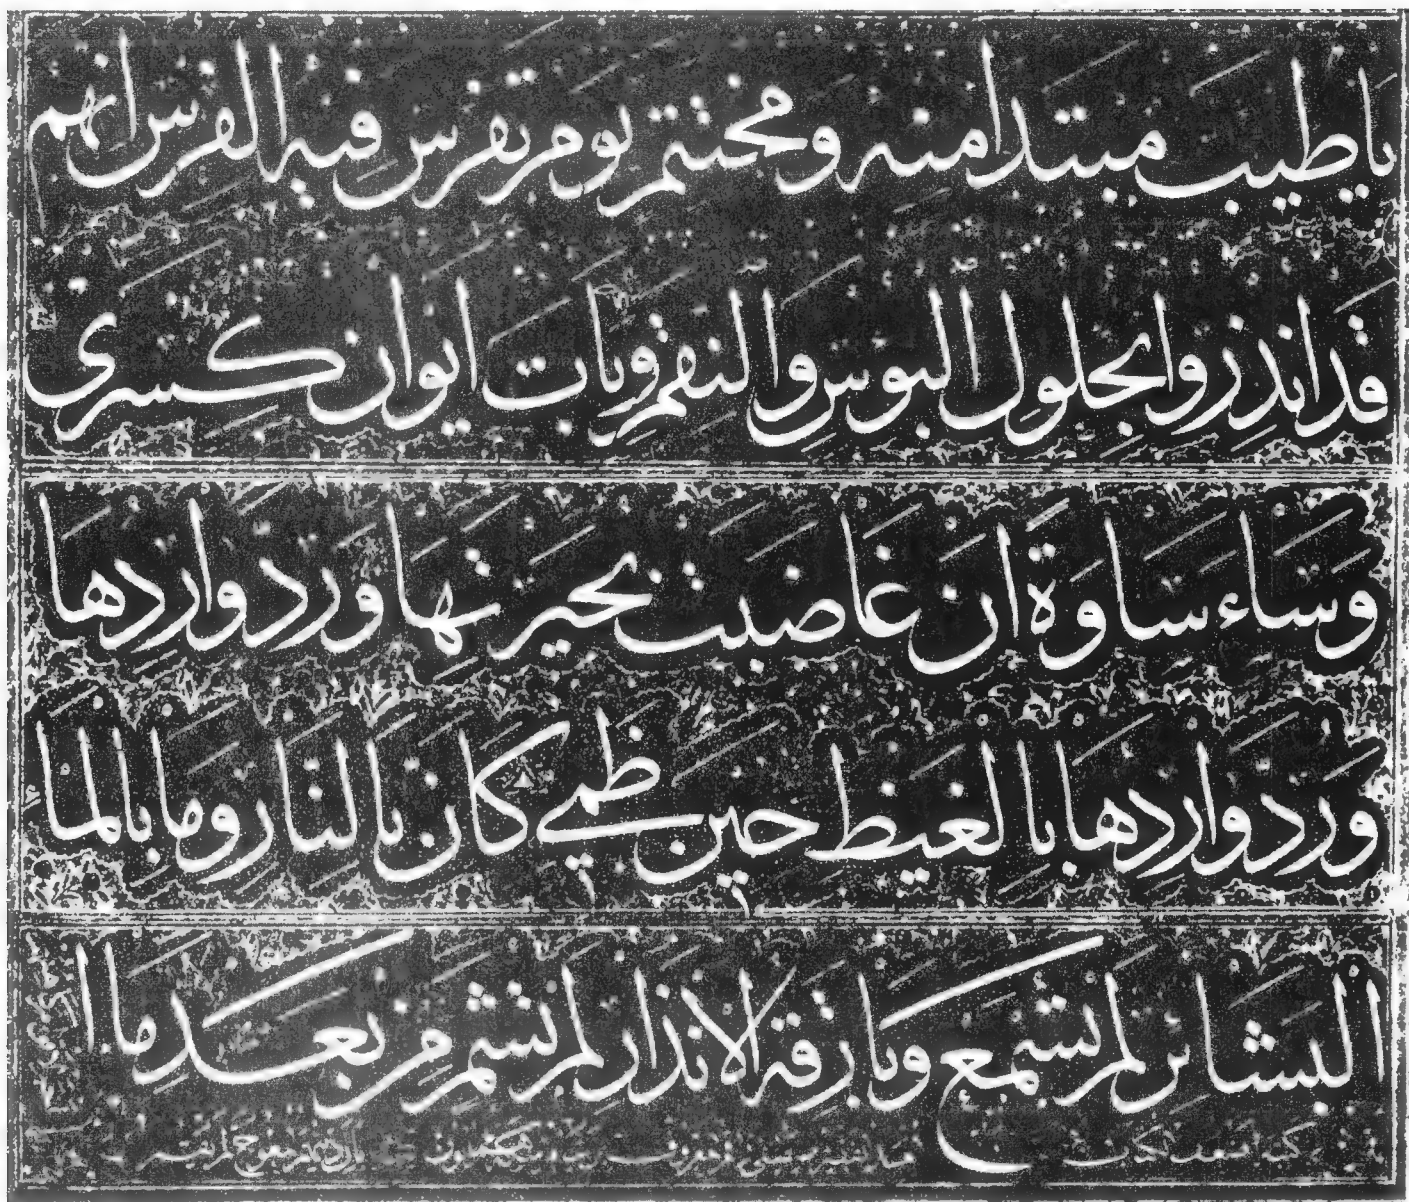 يا طيب مبتدا منه ومختتم يوم تفرس فيه الفرس انهم
قد انذروا بحلول البوس والنقم وبات ايوان كسرى
وساء ساوة ان غاضت بحيرتها ورد واردها
ورد واردها بالغيظ حين ظمي كان بالنار وما بالما
البشائر لم تسمع وبارقة الانذار لم تشم من بعد ما ا